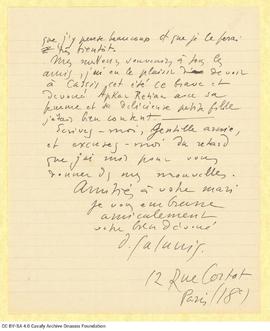 que j'y pense beaucoup et que je le ferai
très bientôt.
Mes meilleurs souvenirs à tous les
amis, j'ai eu le plaisir de voir
à Cassis, cet été ce brave et
dévoué sa
femme et sa délicieuse petite fille
j'étais bien content
Écrivez-moi, Gentille amie,
et excusez-moi du retard
que j'ai mis pour vous
donner de mes nouvelles.
Amitiés à votre mari
je vous embrasse
amicalement
votre bien dévoué
D. Galanis.
12 Rue Cortot
Paris (18e)
CC BY-SA 4.0 Cavafy Archive Onassis Foundation